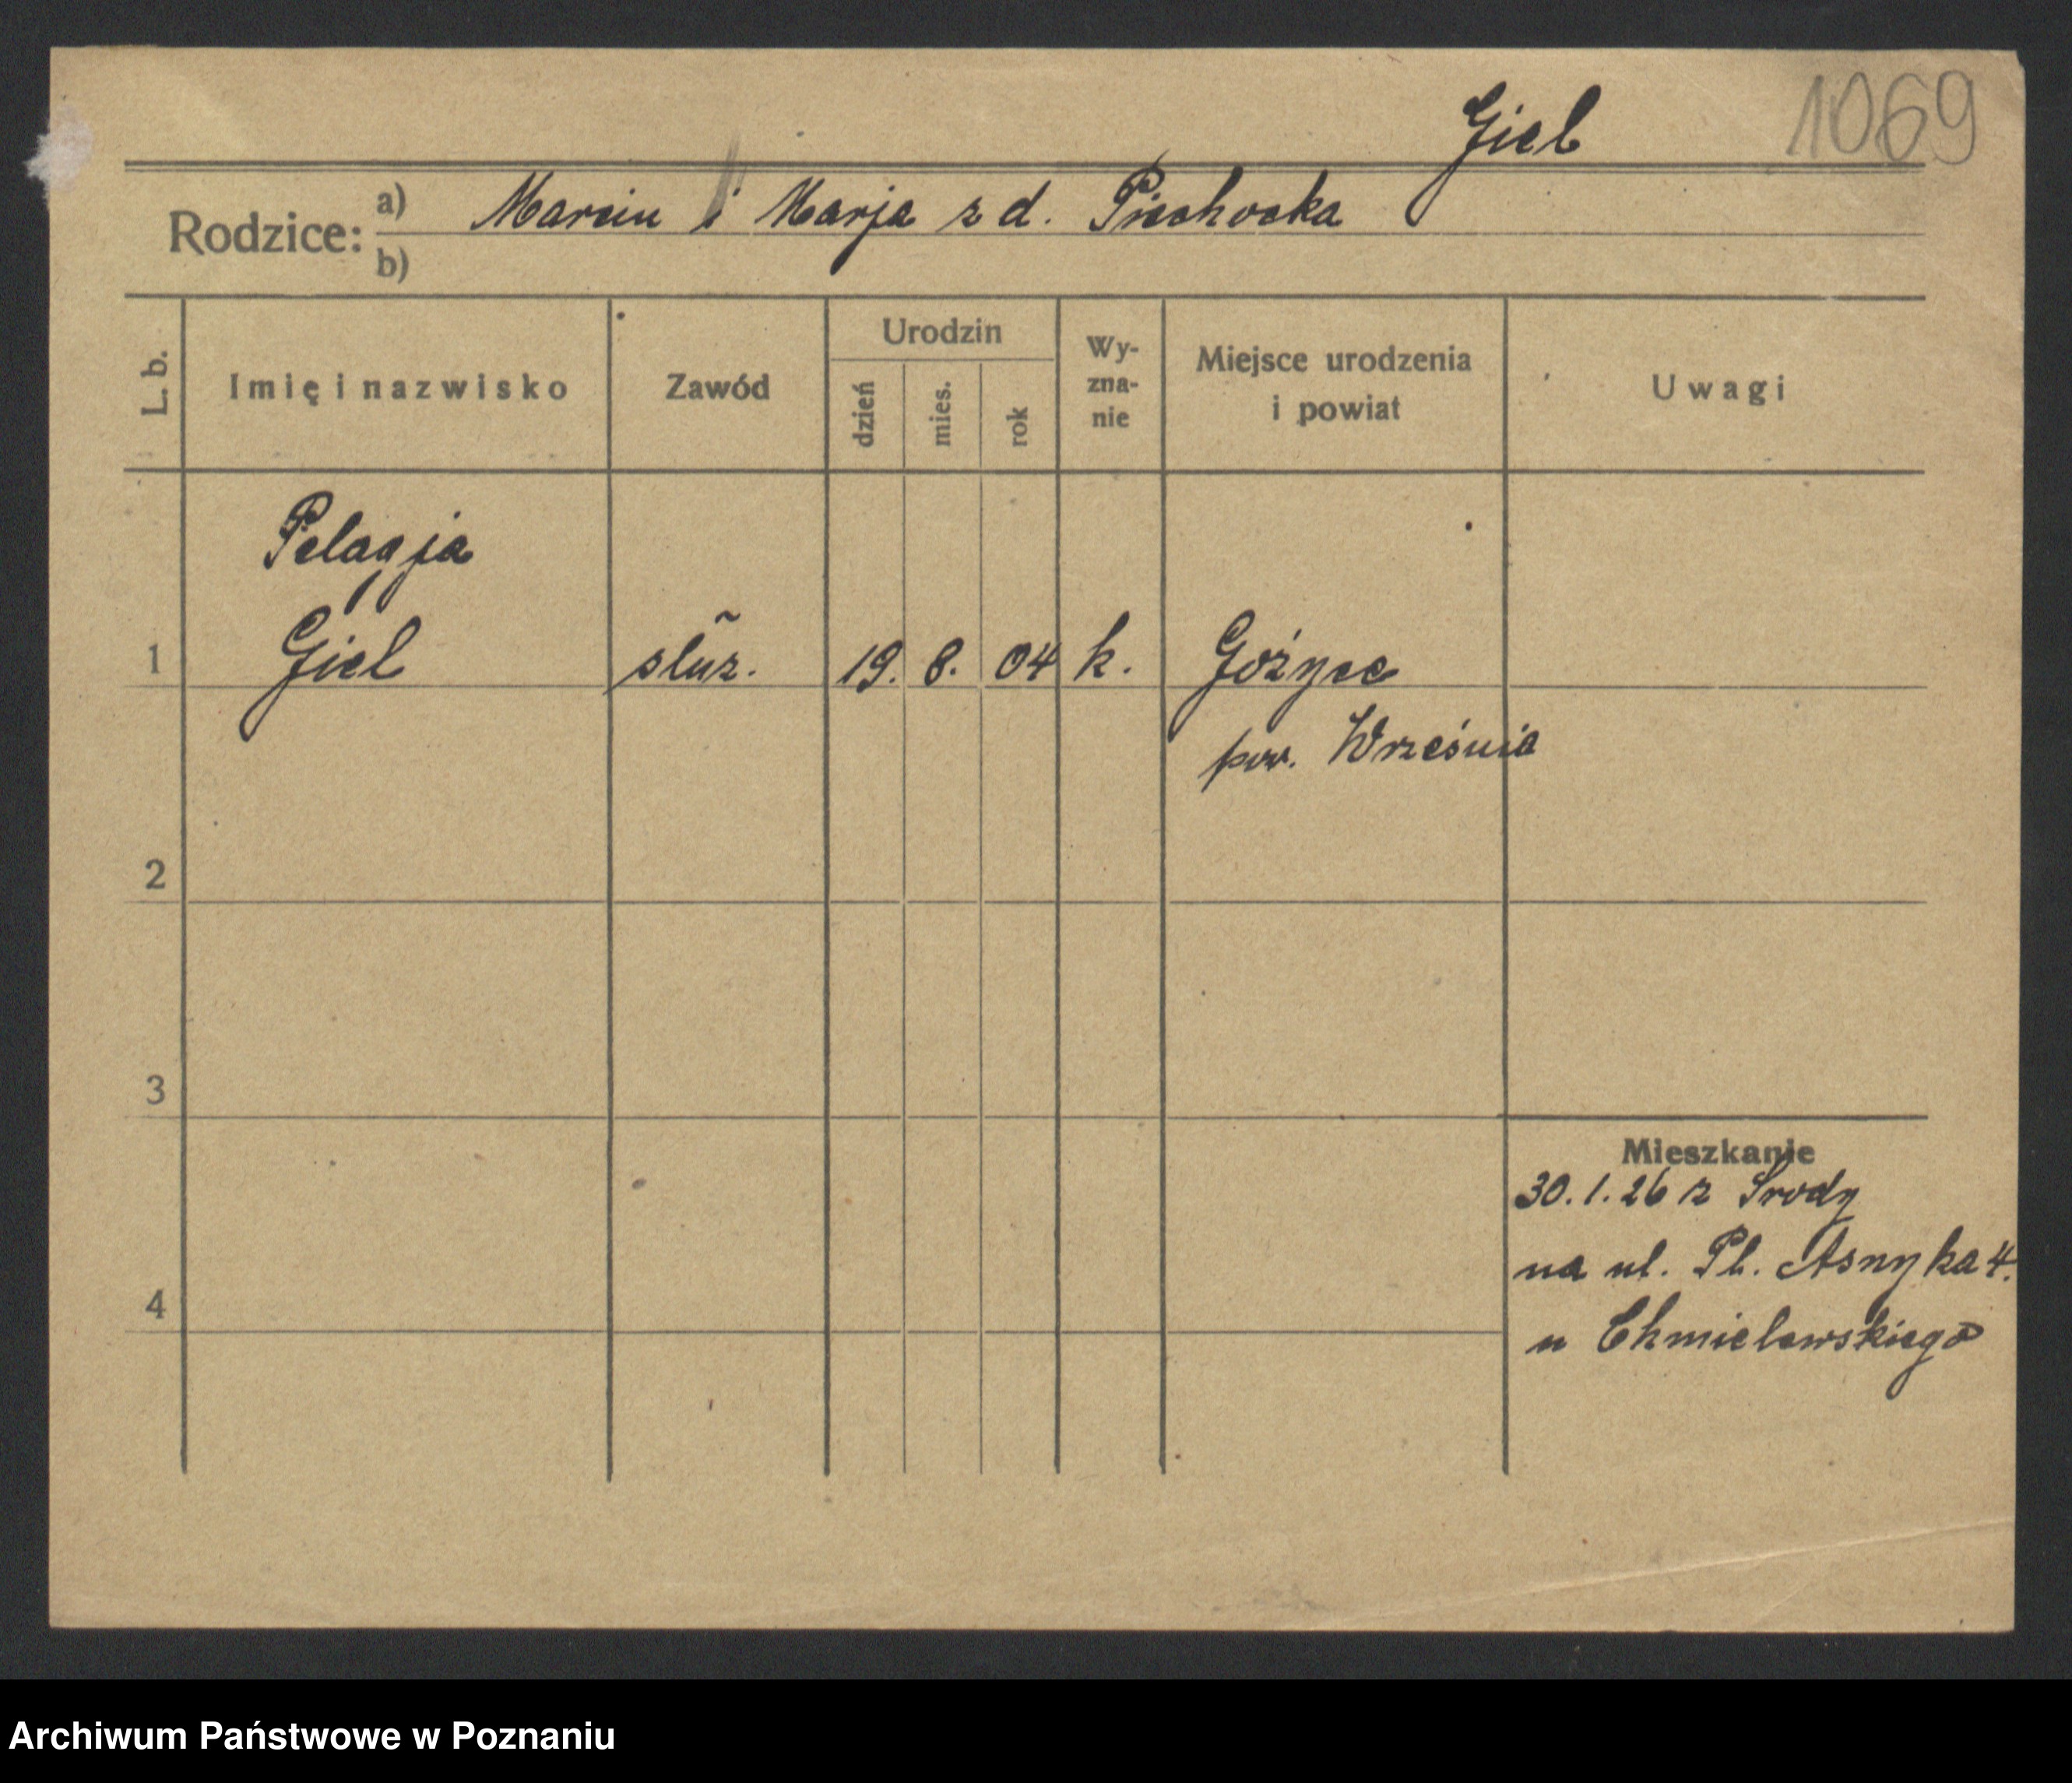 Giel 1069
Rodzice: a) Marcin i Marja z d. Piechocka
b)
L. b. Imię i nazwisko Zawód Urodzin dzień mies. rok Wyznanie Miejsce urodzenia i powiat Uwagi
Pelagja
1 Giel służ. 19. 8. 04 k. Gożyce
pow. Września
2
3
Mieszkanie
30.1.26 z Środy
na ul. Pl. Asnyka 4.
4
u Chmielewskiego
Archiwum Państwowe w Poznaniu